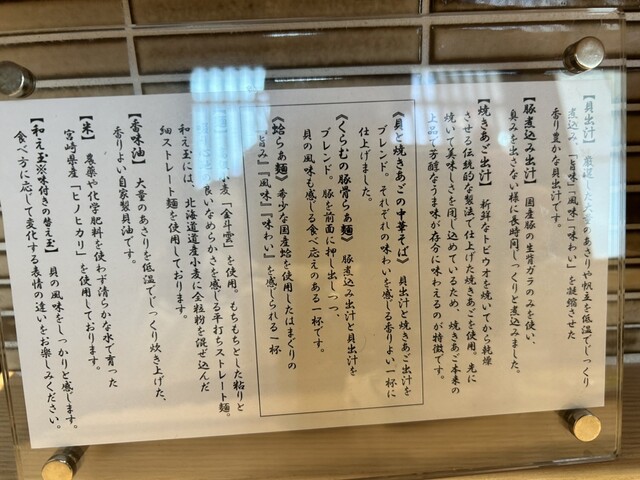 【貝出汁】厳選した大量のあさりや帆立を低温でじっくり
煮込み、「旨味」「風味」「味わい」を凝縮させた
香り豊かな貝出汁です。
【豚煮込み出汁】国産豚の生背ガラのみを使い、
臭みを出さない様に長時間じっくりと煮込みました。
【焼きあご出汁】新鮮なトビウオを焼いてから乾燥
させる伝統的な製法で仕上げた焼きあごを使用。先に
焼いて美味しさを閉じ込めているため、焼きあご本来の
上品で芳醇なうま味が存分に味わえるのが特徴です。
《貝と焼きあごの中華そば》貝出汁と焼きあご出汁を
ブレンド。それぞれの味わいを感じる香りよい一杯に
仕上げました。
《くらむの豚骨らぁ麺》豚煮込み出汁と貝出汁を
ブレンド。豚を前面に押し出しつつ、
貝の風味も感じる食べ応えのある一杯です。
《蛤らぁ麺》希少な国産蛤を使用したはまぐりの
「旨み」「風味」「味わい」を感じられる一杯
小麦「金斗雲」を使用。もちもちとした粘りと
良いなめらかさを感じる平打ちストレート麺。
和え玉には、北海道道産小麦に全粒粉を混ぜ込んだ
細ストレート麺を使用しております。
【香味油】大量のあさりを低温でじっくり炊き上げた、
香りよい自家製貝油です。
【米】農薬や化学肥料を使わず清らかな水で育った
宮崎県産「ヒノヒカリ」を使用しております。
【和え玉※味付きの替え玉】貝の風味をしっかりと感じます。
食べ方に応じて変化する表情の違いをお楽しみください。